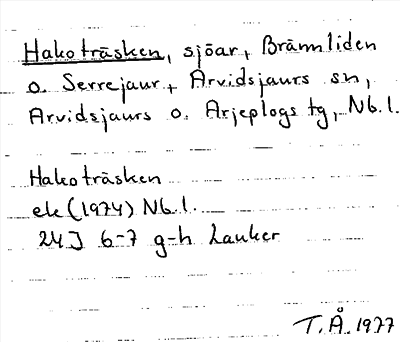 Hakoträsken, sjöar, Brännliden
o. Serrejaur, Arvidsjaurs sn,
Arvidsjaurs o. Arjeplogs tg, Nb. l.
Hakoträsken
ek (1974) Nb. l.
24J 6-7 g-h Lauker
T. Å. 1977